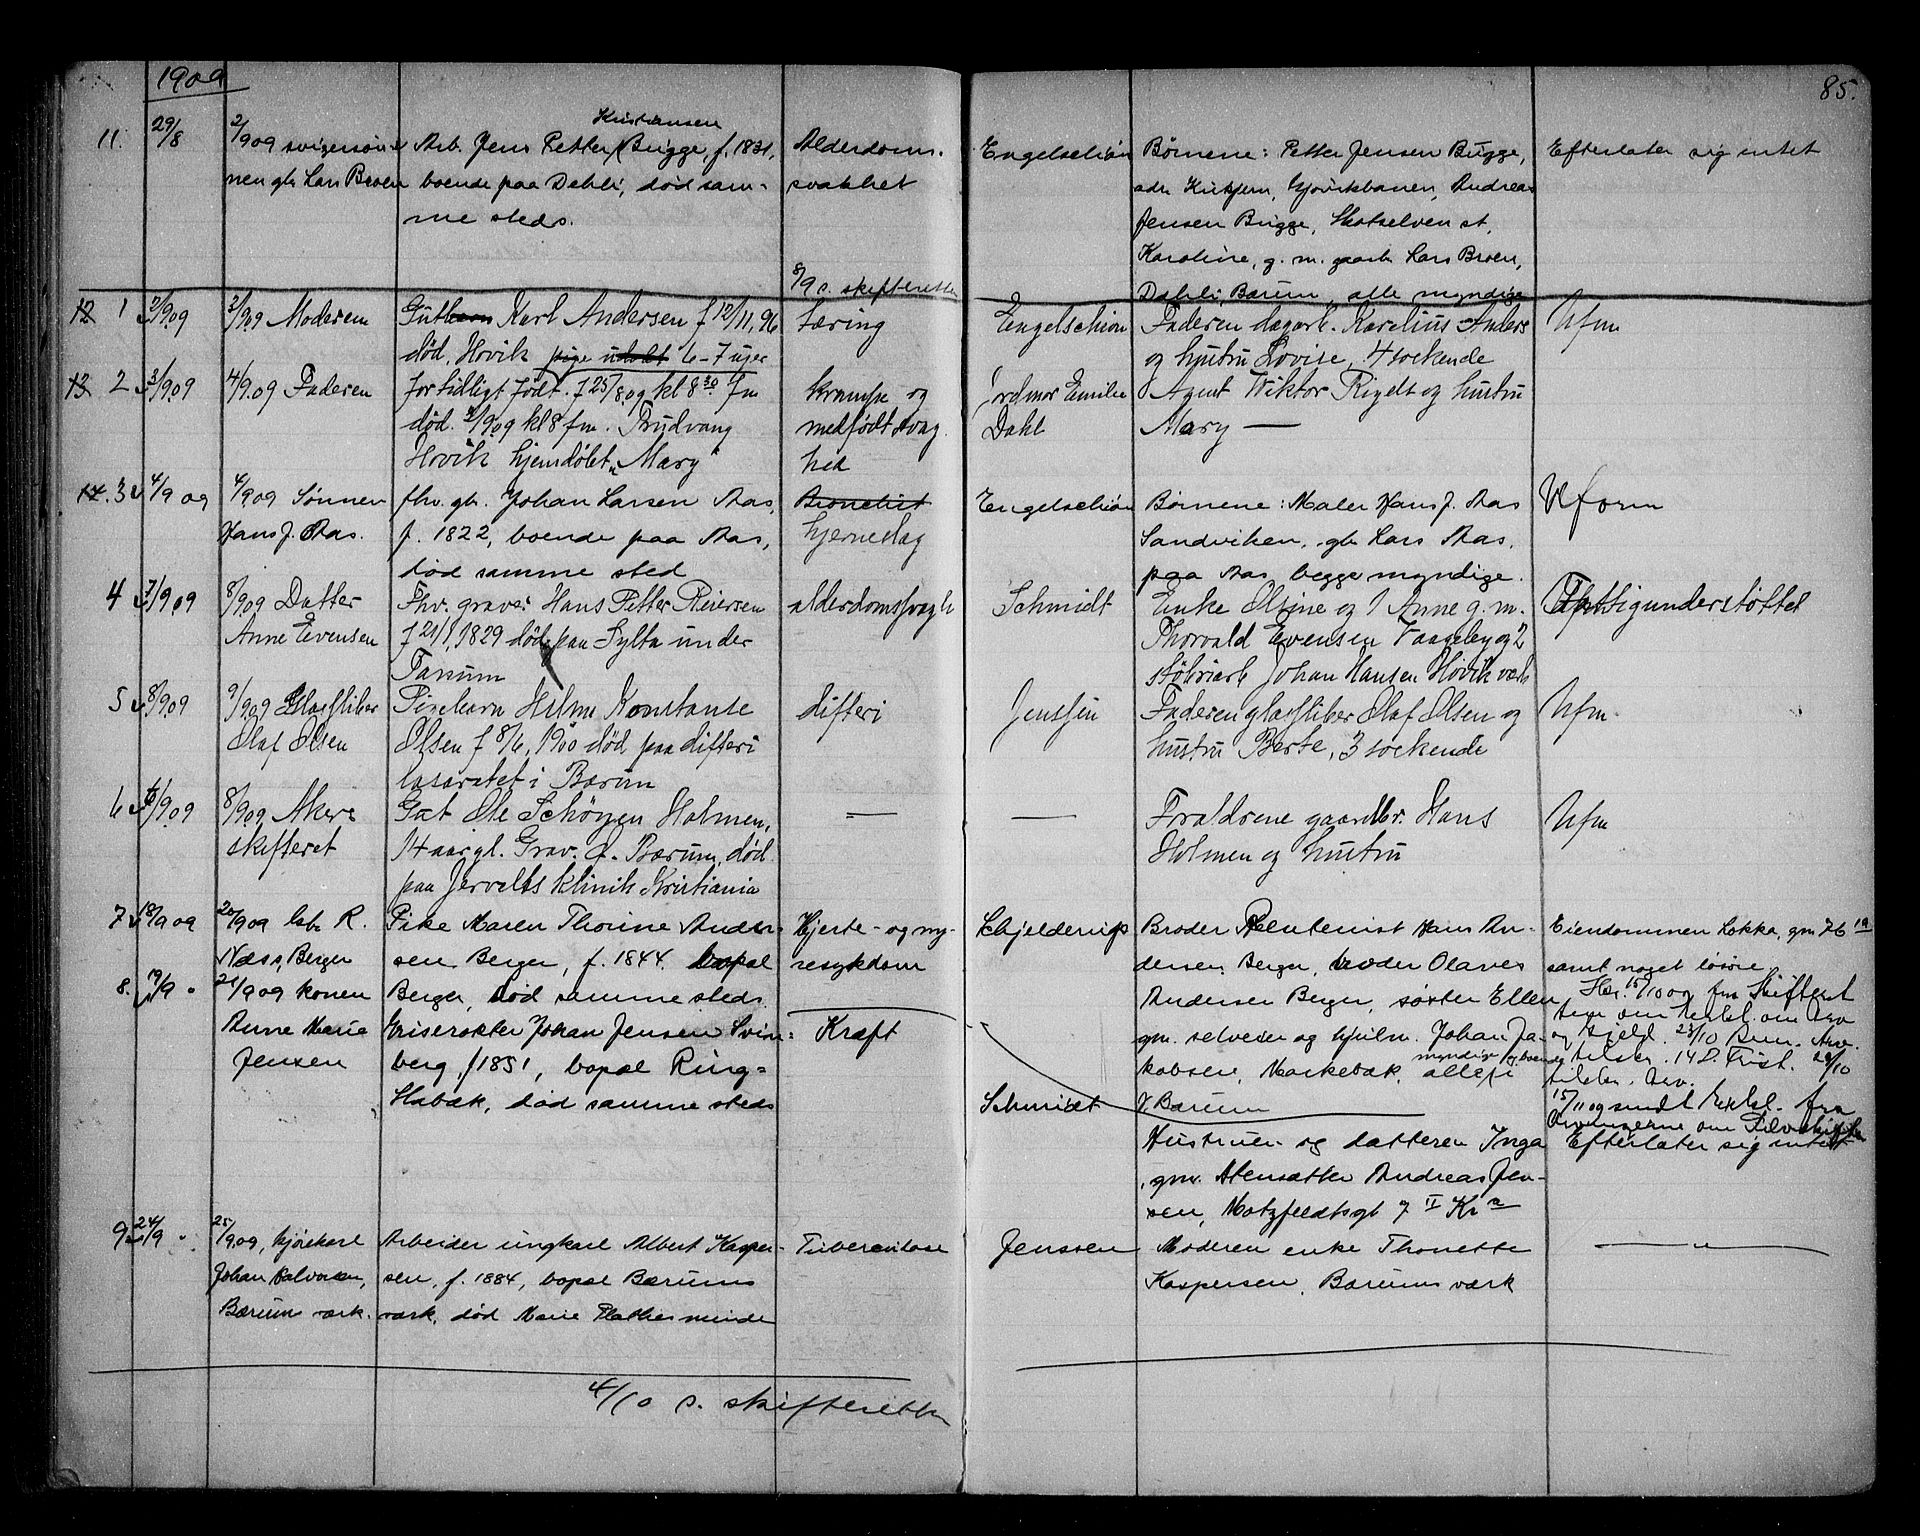 1909
85.
11. 29/8 2/909 svigersøn-
nen gbr Lars Broen
Kristiansen
Arb. Jens Petter Bugge, f. 1831,
boende paa Dehli, død sam-
me steds.
Alderdoms-
svakhet
Engelschiøn
Børnene: Petter Jensen Bugge,
adr. Gjøvikbanen, Andreas
Jensen Bugge, Skotselven st,
Karoline, g. m. gaarb. Lars Broen,
Dæhli, Bærum, alle myndige
Efterlater sig intet
8/9 s. skifteretten
12 1 2/9.09 3/9.09 Moderen
Gutbarn Karl Andersen f 12/11, 96
død, Høvik 6-7 uger
Tæring
Engelschiøn
Faderen dagarb. Karelius Anders
og hustru Lovise, 4 søskende
Ufm
13 2 3/9.09 4/9.09 Faderen
for tidligt født. f 25/8 09 kl 8 30 fm
død 2/9 09 kl 8 fm. Trudvang
Høvik hjemdøbt "Mary"
krampe og
medfødt svag
hed
Jordmor Emilie
Dahl
Agent Wiktor Rigelt og hustru
Mary —
14. 3 4/9 09 4/9.09 Sønnen
Hans J. Aas.
fhv. gb. Johan Larsen Aas,
f. 1822, boende paa Aas,
død samme sted
Bronchit
hjerneslag
Engelschiøn
Børnene: Maler Hans J. Aas
Sandviken, gb Lars Aas,
paa Aas, begge myndige.
Uform
4 7/9 09 8/9.09 Datter
Anne Evensen
Fhv. graver Hans Petter Reiersen
f 21/1, 1829 død paa Sylta under
Tanum
alderdomssvagh
Schmidt
Enke Olsine og 1 Anne g. m.
Thorvald Evensen Vaageby og 2
støberiarb Johan Hansen Høvik værk
Fattigunderstøttet
5 8/9.09 9/9.09 Glassliber
Olaf Olsen
Pigebarn Hilma Konstanse
Olsen f 8/6, 1900 død paa difteri
lasarettet i Bærum
difteri
Jenssen
Faderen glassliber Olaf Olsen og
hustru Berte, 3 søskende
Ufm.
6 6/9.09 8/9.09 Akers
skifteret
Gut Ole Schøyen Holmen,
14 aar gl. Grav. Ø. Bærum, død
paa Jervells klinik Kristiania
—
—
Forældrene gaardbr. Hans
Holmen og hustru
Ufm
7 18/9 09 20/9 09 lsb. R.
Næss, Berger
Pike Maren Thorine Ander-
sen Berger, f. 1844. bopæl
Berger, død samme steds.
Hjerte- og ny-
resykdom
Schjelderup
Broder Rentenist Hans An-
dersen Berger, broder Olaves
Andersen Berger, søster Ellen
gm. selveier og hjulm. Johan Ja-
kobsen, Markebæk, alle i
myndige og boende
Bærum
Eiendommen Løkka, gn 76 19
samt noget løsøre
15/10 09 fra Skifteret
om Arv
og Gjeld. 23/10
14 d. Frist. 26/10
15/11 09 sendt fra
Arvingerne om
8. 19/9 " 21/9 09 konen
Anne Marie
Jensen
Griserøkter Johan Jensen Svin-
berg, f 1851, bopæl Ring-
stabæk, død samme steds
Kræft
Schmidt
Hustruen og datteren Inga
gm. Stensætter Andreas Jen-
sen, Motzfeldtsgt 7 II Kr a
Efterlater sig intet
9 24/9 " 25/9.09, kjørekarl
Johan Halvorsen,
Bærum værk.
Arbeider ungkarl Albert Kasper-
sen, f. 1884, bopæl Bærums
værk, død Marie Plathes minde
Tuberculose
Jenssen
Moderen enke Thonette
Kaspersen, Bærums værk
— " —
4/10 s. skifteretten